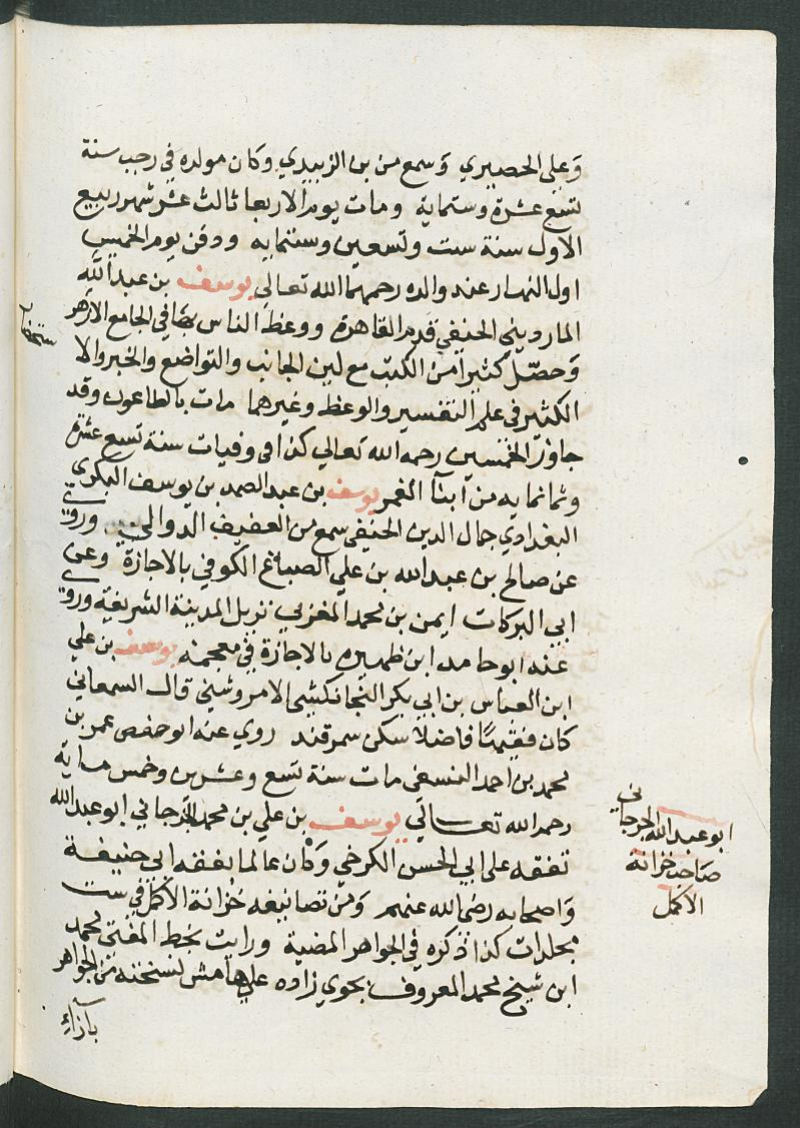 وعلى الحصيري وسمع من بن الزبيدي وكان مولده في رجب سنة
تسع عشرة وستماية ومات يوم الاربعا ثالث عشر شهر ربيع
الاول سنة ست وتسعين وستمايه ودفن يوم الخميس
اول النهار عند والده رحمهما الله تعالى يوسف بن عبد الله
المارديني الحنفي قدم القاهرة ووعظ الناس بها في الجامع الازهر
وحصّل كثيرا من الكتب مع لين الجانب والتواضع والخير والا
الكثير في علم التفسير والوعظ وغيرهما مات بالطاعون وقد
جاوز الخمسين رحمه الله تعالى كذا في وفيات سنة تسع عشرة
وثمانمايه من أبنآ الغمر يوسف بن عبد الصمد بن يوسف البكري
البغدادي جمال الدين الحنفي سمع من العفيف الدوالي وروى
عن صالح بن عبد الله بن علي الصباغ الكوفي بالاجازة وعن
ابي البركات ايمن بن محمد المغربي نزيل المدينة الشريفة وروى
عنه ابو حامد ابن ظهيره بالاجازة في معجمه يوسف بن علي
ابن العباس بن ابي بكر النجانكثي الامروشني قال السمعاني
كان فقيهًا فاضلا سكن سمرقند روي عنه ابو حفص عمر بن
محمد بن احمد النسفي مات سنة تسع وعشرين وخمس ماية
رحمه الله تعالى يوسف بن علي بن محمد الجرجاني ابو عبد الله
تفقه على ابي الحسن الكرخي وكان عالما بفقه ابي حنيفة
واصحابه رضي الله عنهم ومن تصانيفه خزانة الاكمل في ست
مجلدات كذا ذكره في الجواهر المضية ورايت بخط المفتي محمد
ابن شيخ محمد المعروف بجوي زاده على هامش لنسخته من الجواهر
بازآء
ابو عبد الله الجرجاني
صاحب خزانة
الاكمل